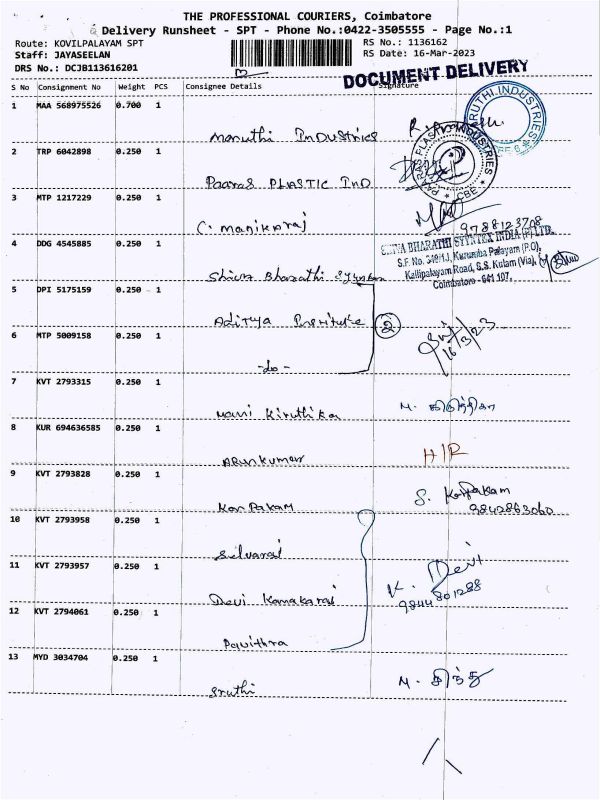 THE PROFESSIONAL COURIERS, Coimbatore
Delivery Runsheet - SPT - Phone No.:0422-3505555 - Page No.:1
Route: KOVILPALAYAM SPT
RS No.: 1136162
Staff: JAYASEELAN
RS Date: 16-Mar-2023
DRS No.: DCJB113616201
DOCUMENT DELIVERY
S No Consignment No Weight PCS Consignee Details Signature
1 MAA 568975526 0.700 1
Maruthi Industries
2 TRP 6042898 0.250 1
Paaras PLASTIC IND
PAARAS PLAST INDUSTRIES CBE
3 MTP 1217229 0.250 1
C. Manikaraj
9788123708
4 DDG 4545885 0.250 1
SHIVA BHARATHI SYNTEX INDIA (P) LTD.
S.F. No. 349/1J, Kurumba Palayam (P.O),
Kallipalayam Road, S.S. Kulam (Via),
Coimbatore - 641 107.
Shiva Bharathi
5 DPI 5175159 0.250 1
Aditya Institute
2
6 MTP 5009158 0.250 1
16/3/23
-do-
7 KVT 2793315 0.250 1
Mani Kiruthika
M. கிருத்திகா
8 KUR 694636585 0.250 1
Arunkumar
H/R
9 KVT 2793828 0.250 1
Karpakam
S. Karpakam
9842863060
10 KVT 2793958 0.250 1
Selvaraj
11 KVT 2793957 0.250 1
Devi Kanakaraj
K. Devi
9844801288
12 KVT 2794061 0.250 1
Pavithra
13 MYD 3034704 0.250 1
Sruthi